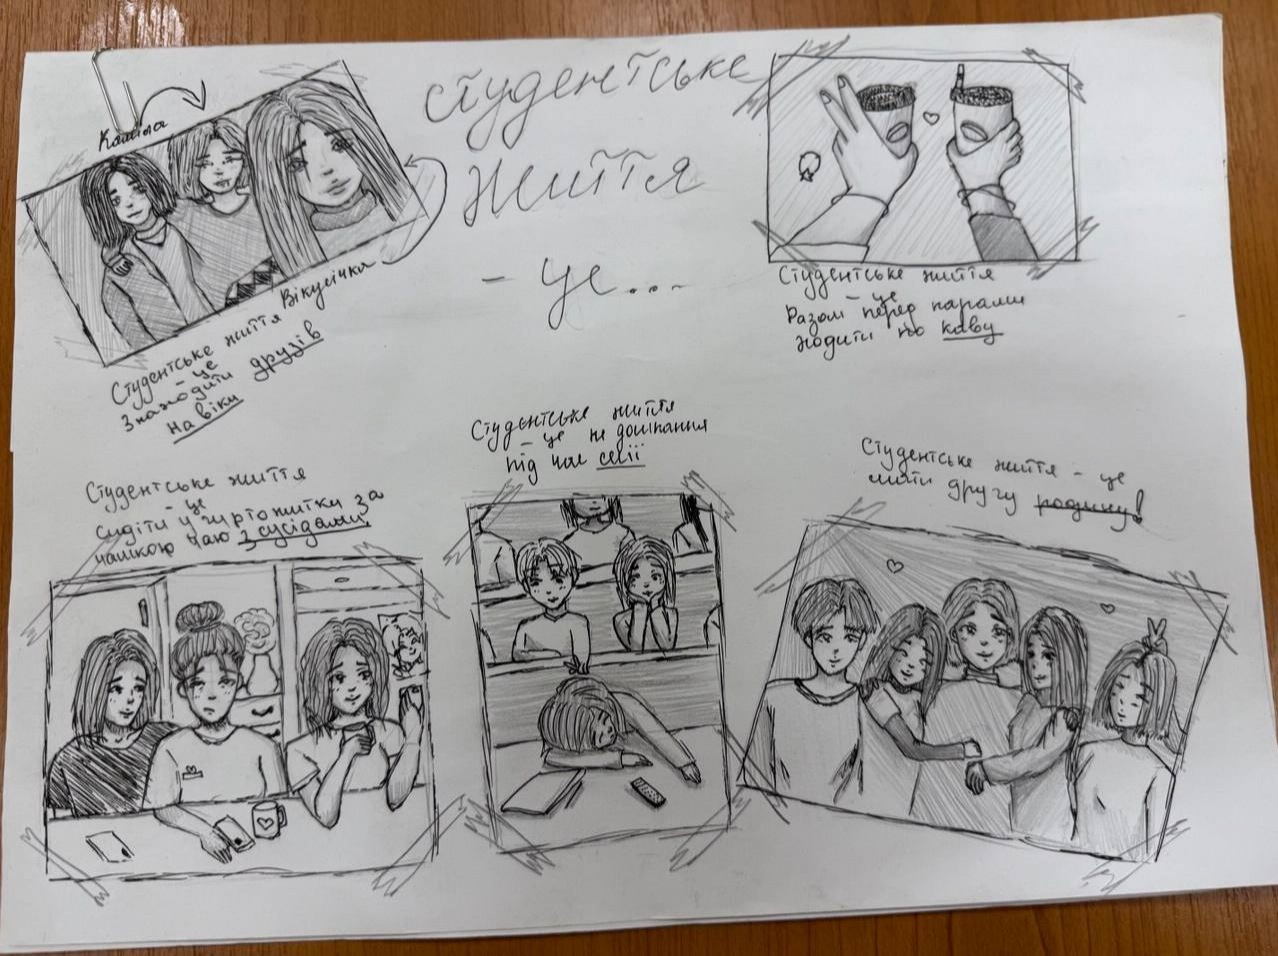 Студентське
життя
- це...
Каміла
Вікусічка
Студентське життя
- це
Знаходити друзів
на віки
Студентське життя
- це
Разом перед парами
ходити по каву
Студентське життя
- це
сидіти у гуртожитку за
чашкою чаю з сусідами
Студентське життя
- це не доспання
під час сесії
Студентське життя - це
мати другу родину!